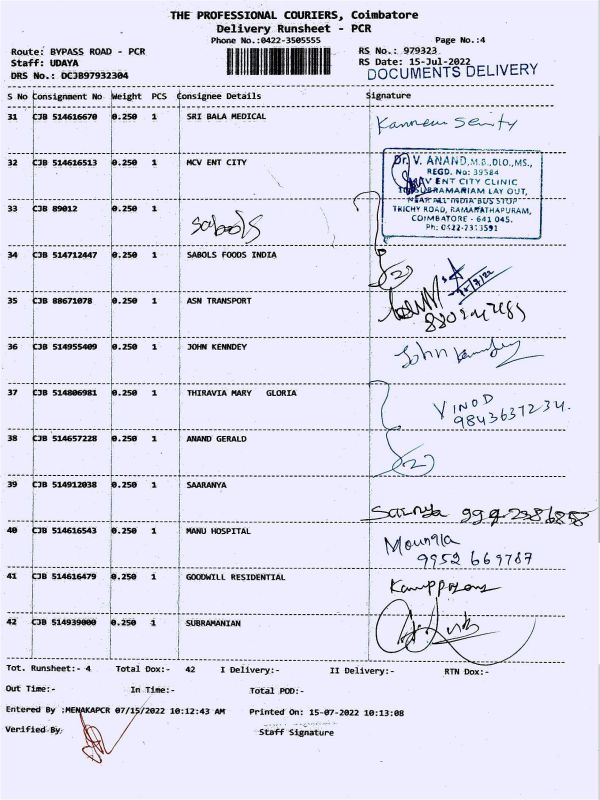 THE PROFESSIONAL COURIERS, Coimbatore
Delivery Runsheet - PCR
Phone No.:0422-3505555 Page No.:4
Route: BYPASS ROAD - PCR RS No.: 979323
Staff: UDAYA RS Date: 15-Jul-2022
DRS No.: DCJB97932304 DOCUMENTS DELIVERY
S No Consignment No Weight PCS Consignee Details Signature
31 CJB 514616670 0.250 1 SRI BALA MEDICAL
32 CJB 514616513 0.250 1 MCV ENT CITY
Dr. V. ANAND, M.B., DLO., MS.,
REGD. No: 39584
ENT CITY CLINIC
LAY OUT,
NEAR ALL INDIA BUS STOP
TRICHY ROAD, RAMANATHAPURAM,
COIMBATORE - 641 045.
Ph: 0422-2313591
33 CJB 89012 0.250 1 Sabols
34 CJB 514712447 0.250 1 SABOLS FOODS INDIA
2
35 CJB 88671078 0.250 1 ASN TRANSPORT
36 CJB 514955409 0.250 1 JOHN KENNDEY John Kenndey
37 CJB 514806981 0.250 1 THIRAVIA MARY GLORIA VINOD
9843637234.
38 CJB 514657228 0.250 1 ANAND GERALD
2
39 CJB 514912038 0.250 1 SAARANYA
40 CJB 514616543 0.250 1 MANU HOSPITAL
9952 669787
41 CJB 514616479 0.250 1 GOODWILL RESIDENTIAL
42 CJB 514939000 0.250 1 SUBRAMANIAN
Tot. Runsheet:- 4 Total Dox:- 42 I Delivery:- II Delivery:- RTN Dox:-
Out Time:- In Time:- Total POD:-
Entered By :MENAKAPCR 07/15/2022 10:12:43 AM Printed On: 15-07-2022 10:13:08
Verified By Staff Signature